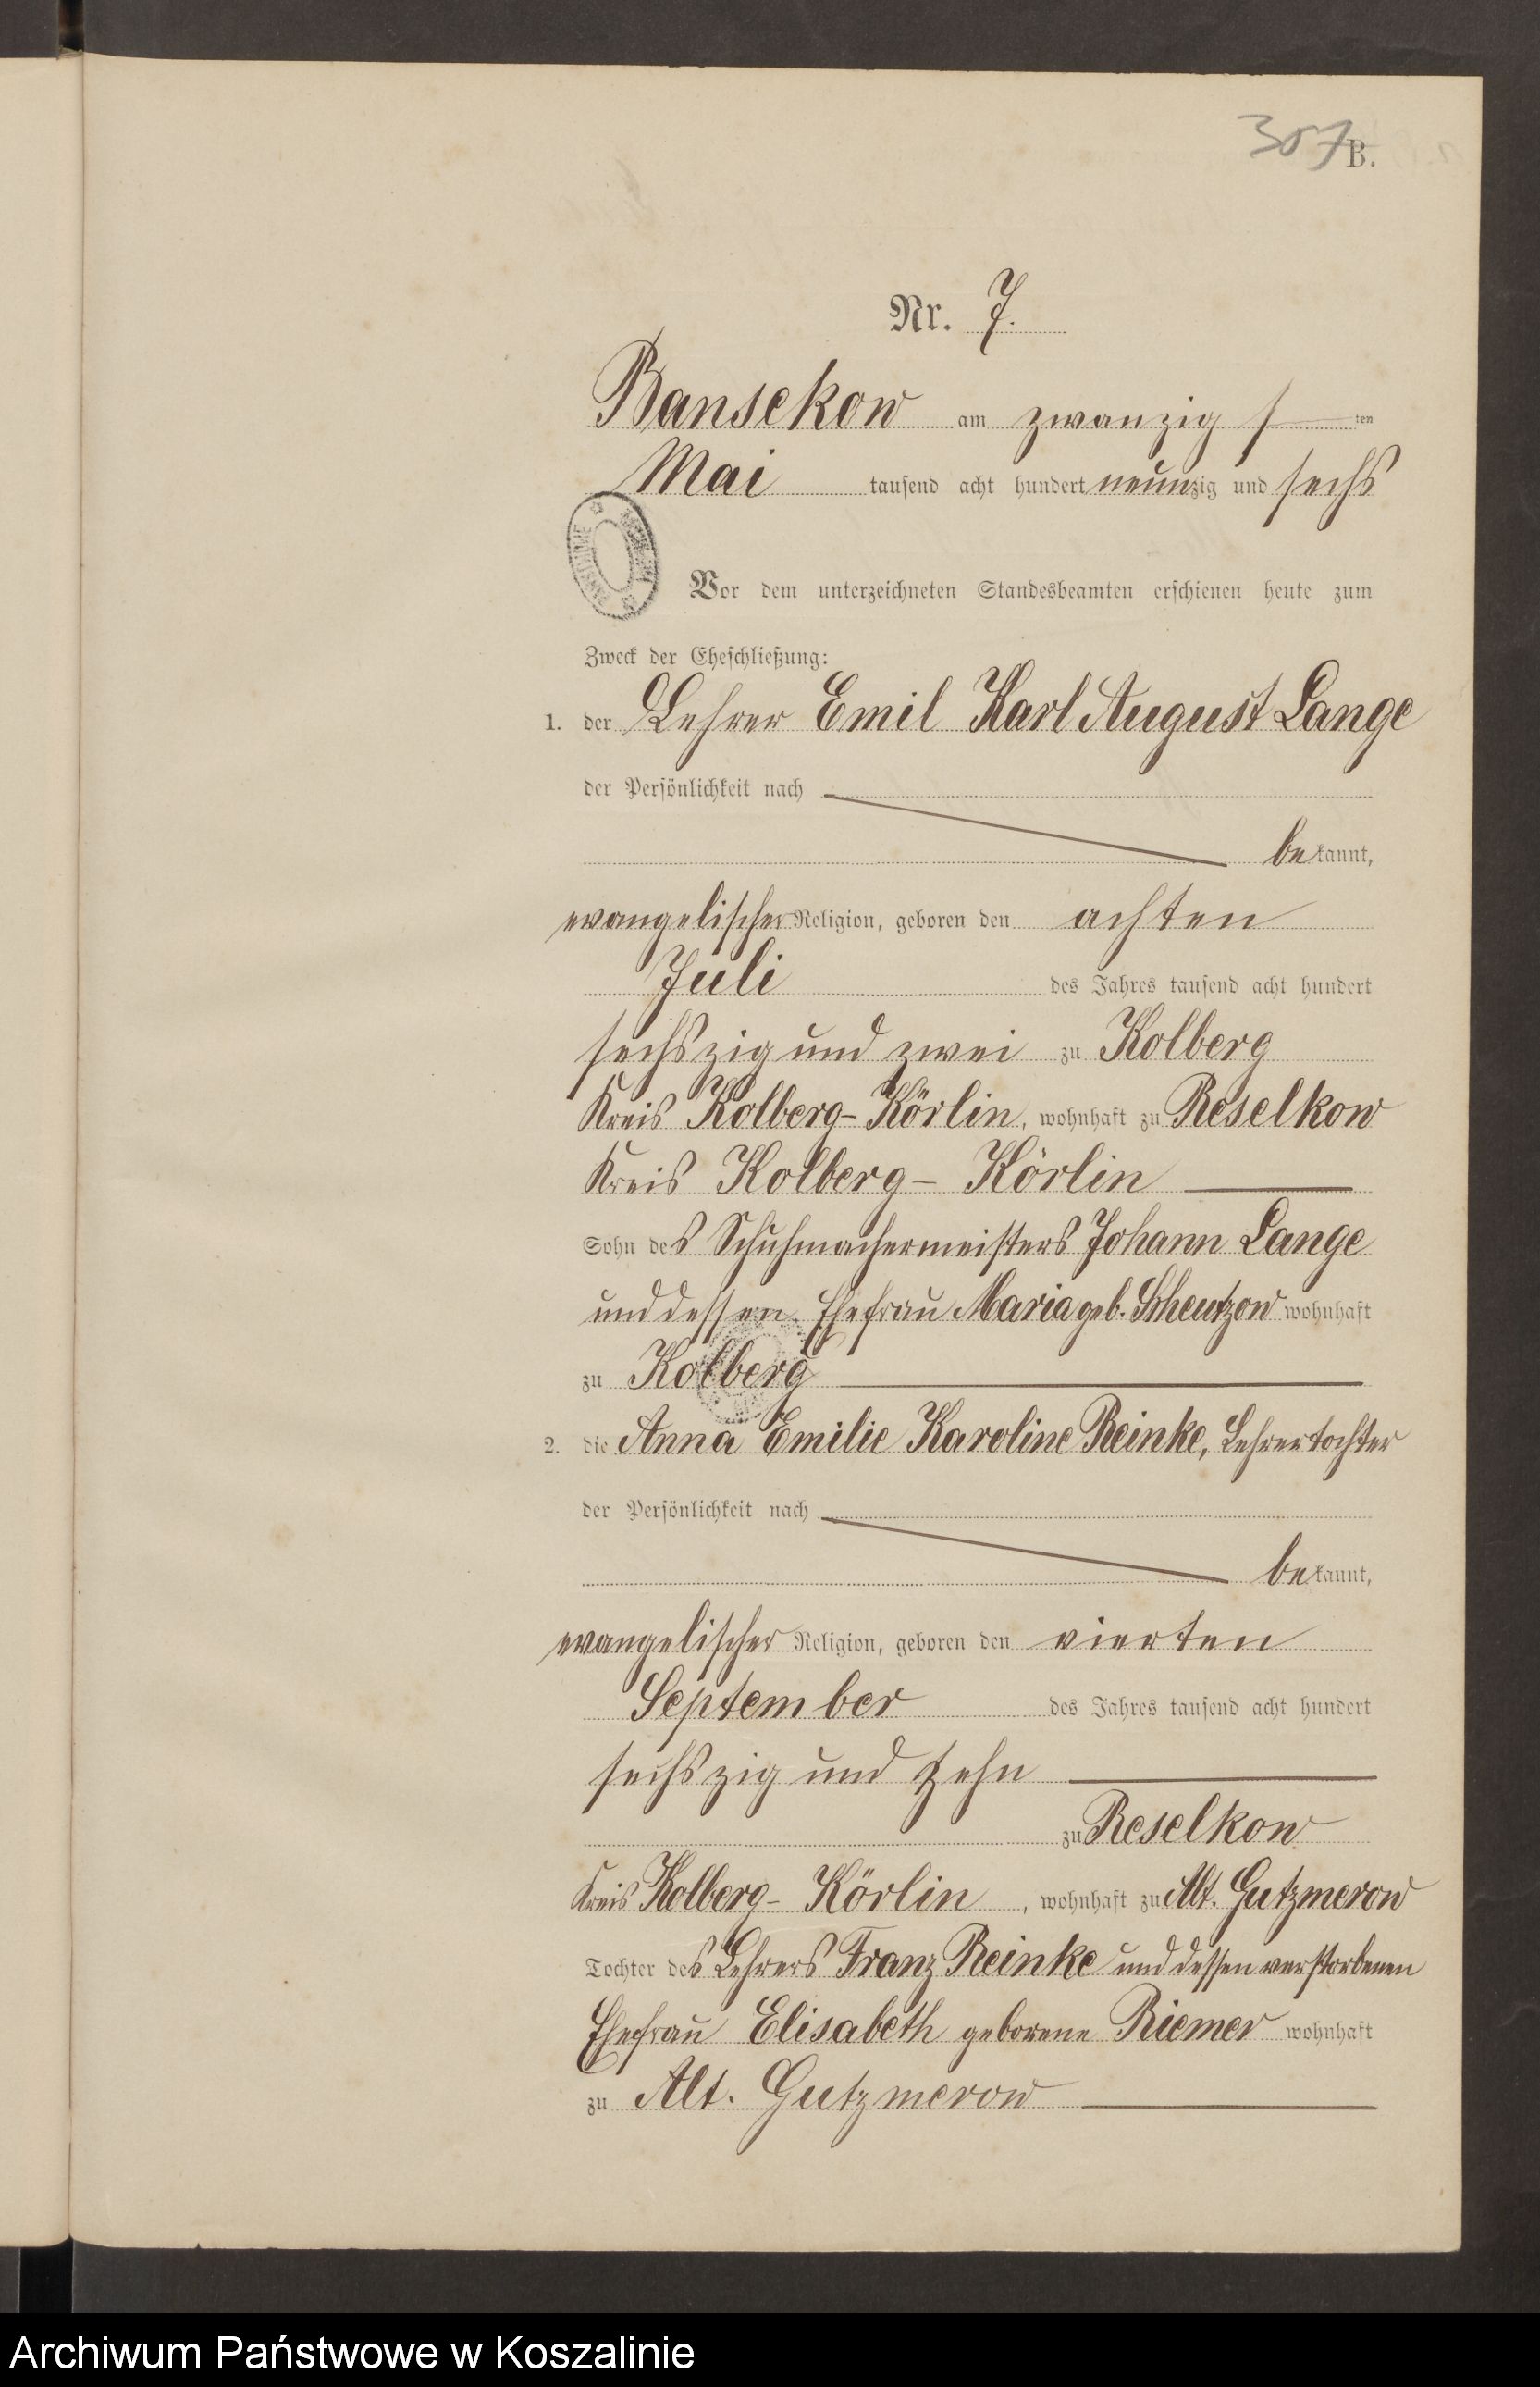 307
B.
Nr. 7.
Bansekow am zwanzigs ten
Mai tausend acht hundert neunzig und sechs
Vor dem unterzeichneten Standesbeamten erschienen heute zum
Zweck der Eheschließung:
1. der Lehrer Emil Karl August Lange
der Persönlichkeit nach
bekannt,
evangelischer Religion, geboren den achten
Juli des Jahres tausend acht hundert
sechszig und zwei zu Kolberg
Kreis Kolberg-Körlin, wohnhaft zu Reselkow
Kreis Kolberg-Körlin
Sohn des Schuhmachermeisters Johann Lange
und dessen Ehefrau Maria geb. wohnhaft
zu Kolberg
2. die Anna Emilie Karoline Reinke, Lehrertochter
der Persönlichkeit nach
bekannt,
evangelischer Religion, geboren den vierten
September des Jahres tausend acht hundert
sechszig und zehn
zu Reselkow
Kreis Kolberg-Körlin, wohnhaft zu Alt. Gutzmerow
Tochter des Lehrers Franz Reinke und dessen verstorbenen
Ehefrau Elisabeth geborene Riemer wohnhaft
zu Alt. Gutzmerow
Archiwum Państwowe w Koszalinie